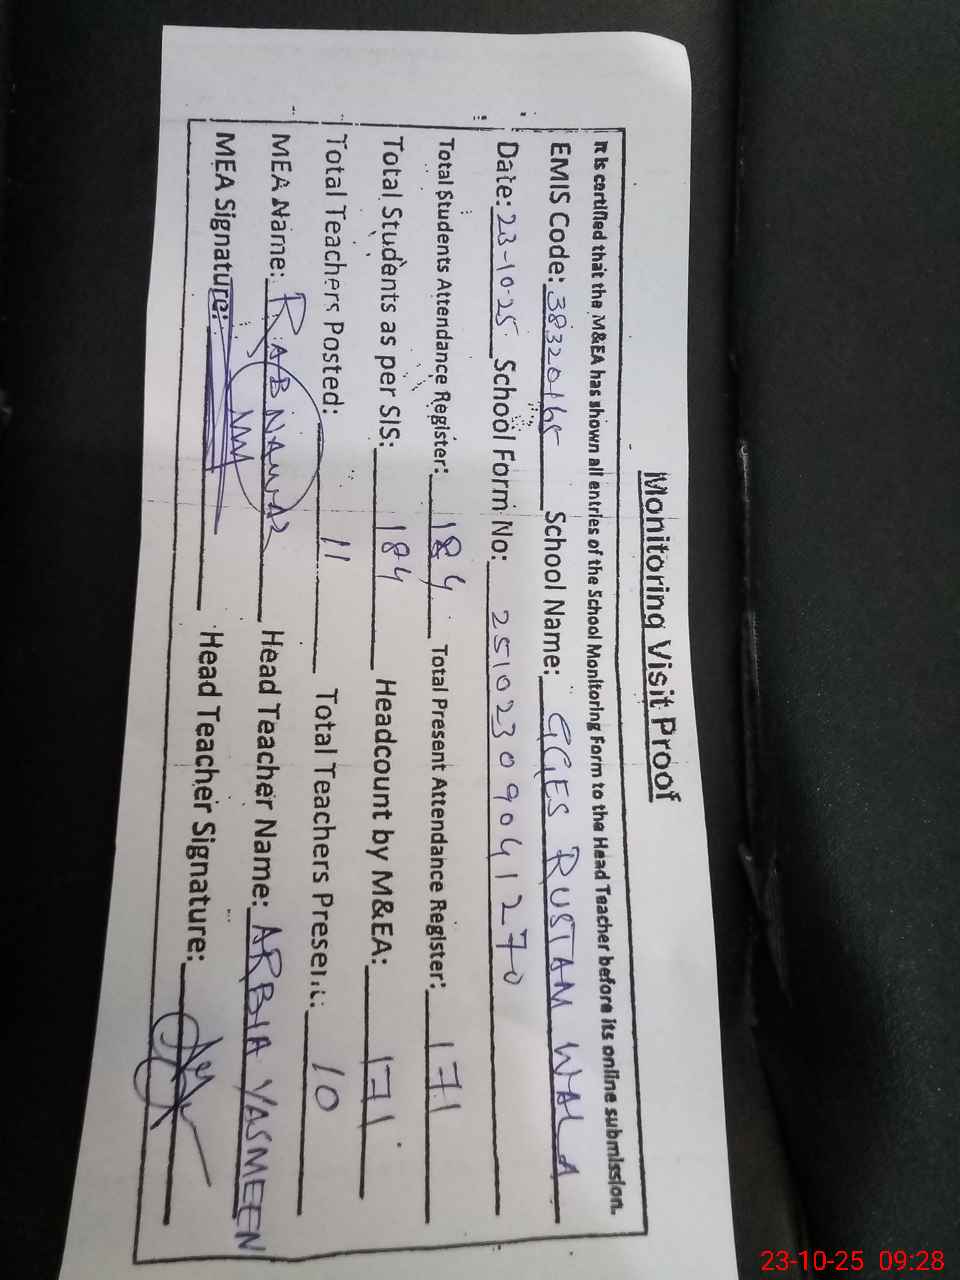 Monitoring Visit Proof
It is certified that the M&EA has shown all entries of the School Monitoring Form to the Head Teacher before its online submission.
EMIS Code: 38320165 School Name: GGES RUSTAM WALA
Date: 23-10-25 School Form No: 25102309041270
Total Students Attendance Register: 184 Total Present Attendance Register: 171
Total Students as per SIS: 184 Headcount by M&EA: 171
Total Teachers Posted: 11 Total Teachers Present: 10
MEA Name: RAB NAWAZ Head Teacher Name: ARBIA YASMEEN
MEA Signature: Head Teacher Signature:
23-10-25 09:28